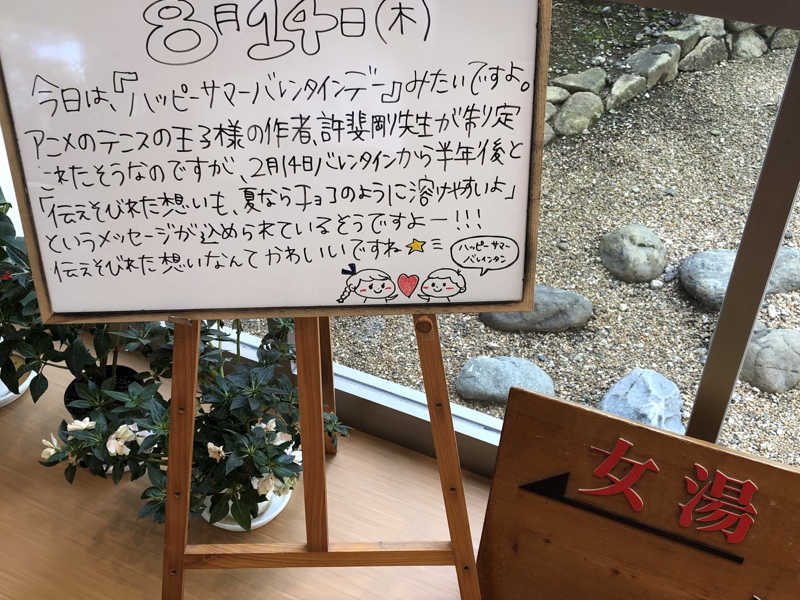 8月14日(木)
今日は、『ハッピーサマーバレンタインデー』みたいですよ。
アニメのテニスの王子様の作者、許斐剛先生が制定
されたそうなのですが、2月14日バレンタインから半年後と
「伝えそびれた想いも、夏ならチョコのように溶けやすいよ」
というメッセージが込められているそうですよー!!!
伝えそびれた想いなんてかわいいですね
ハッピーサマー
バレインタン
女湯